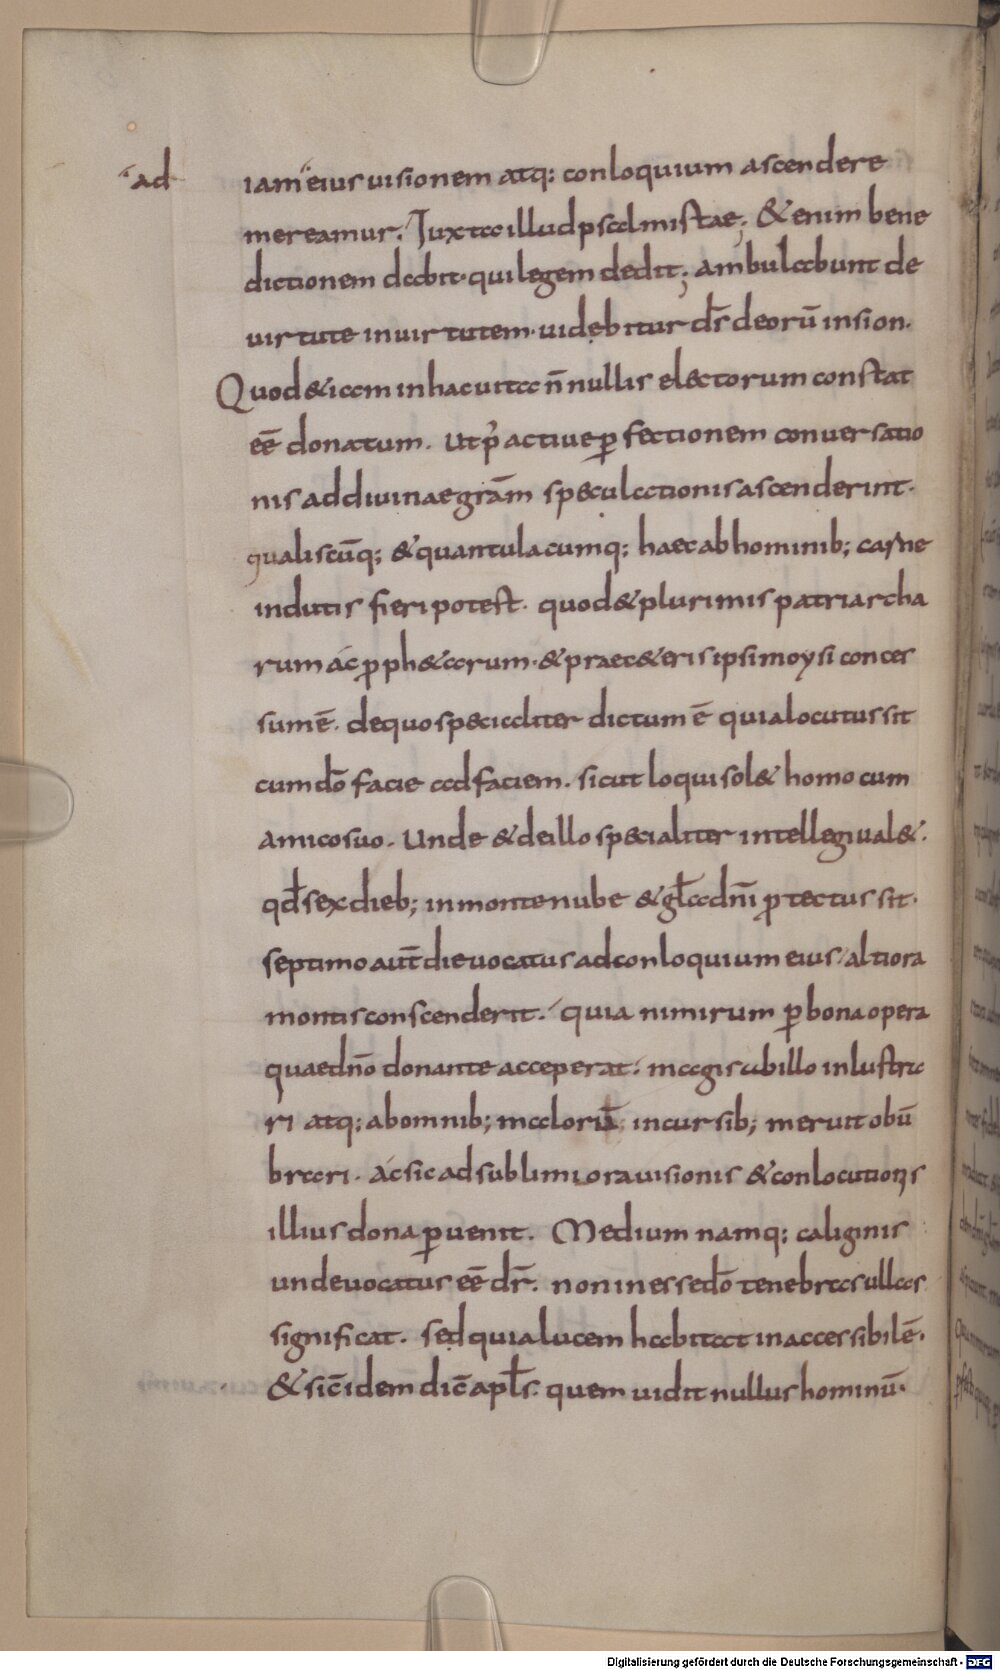 ad
iam eius uisionem atq; conloquium ascendere
mereamur. Iuxta illud psalmistae; & enim bene
dictionem dabit qui legem dedit; ambulabunt de
uirtute in uirtutem. uidebitur d̄s deorū in sion.
Quod & iam in hac uita n̄ nullis electorum constat
eē donatum. ut p̓ actiue ꝑfectionem conuersatio
nis ad diuinae grām speculationis ascenderint.
qualiscūq; & quantulacumq; haec ab hominib; carne
indutis fieri potest. quod & plurimis patriarcha
rum ac ꝓph&arum. & prae c&eris ipsi moysi conces
sum ē. de quo specialiter dictum ē quia locutus sit
cum dō facie ad faciem. sicut loqui sol& homo cum
amico suo. Unde & de illo specialiter intellegi ual&.
qđ sex dieb; in monte nube & gła dn̄i ꝓtectus sit.
septimo aut̄ die uocatus ad conloquium eius altiora
montis conscenderit. quia nimirum ꝑ bona opera
quae dn̄o donante acceperat. magis ab illo inlustra
ri atq; ab omnib; malorū incursib; meruit obū
brari. ac sic ad sublimiora uisionis & conlocutionis
illius dona ꝑuenit. Medium namq; caliginis
unde uocatus eē dr̄. non inesse dō tenebras ullas
significat. sed quia lucem habitat inaccessibilē.
& sic̄ idem dic̄ apłs. quem uidit nullus hominū.
Digitalisierung gefördert durch die Deutsche Forschungsgemeinschaft - DFG